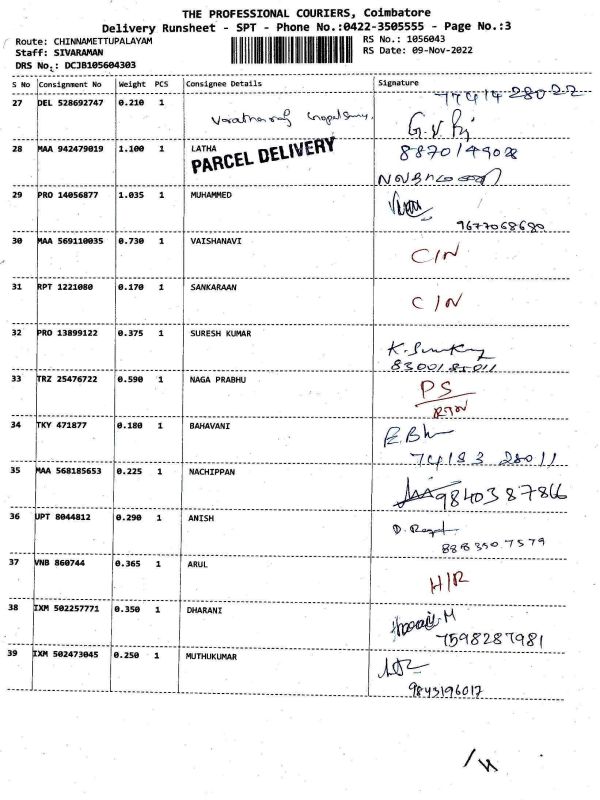 THE PROFESSIONAL COURIERS, Coimbatore
Delivery Runsheet - SPT - Phone No.:0422-3505555 - Page No.:3
Route: CHINNAMETTUPALAYAM RS No.: 1056043
Staff: SIVARAMAN RS Date: 09-Nov-2022
DRS No.: DCJB105604303
S No Consignment No Weight PCS Consignee Details Signature
27 DEL 528692747 0.210 1
28 MAA 942479019 1.100 1 LATHA
PARCEL DELIVERY
29 PRO 14056877 1.035 1 MUHAMMED
9677068680
30 MAA 569110035 0.730 1 VAISHANAVI C/N
31 RPT 1221080 0.170 1 SANKARAAN C/N
32 PRO 13899122 0.375 1 SURESH KUMAR
33 TRZ 25476722 0.590 1 NAGA PRABHU PS
RTN
34 TKY 471877 0.180 1 BAHAVANI
74183 28011
35 MAA 568185653 0.225 1 NACHIPPAN 9840387866
36 UPT 8044812 0.290 1 ANISH
888350 7579
37 VNB 860744 0.365 1 ARUL H/R
38 IXM 502257771 0.350 1 DHARANI
7598287981
39 IXM 502473045 0.250 1 MUTHUKUMAR
9843196017